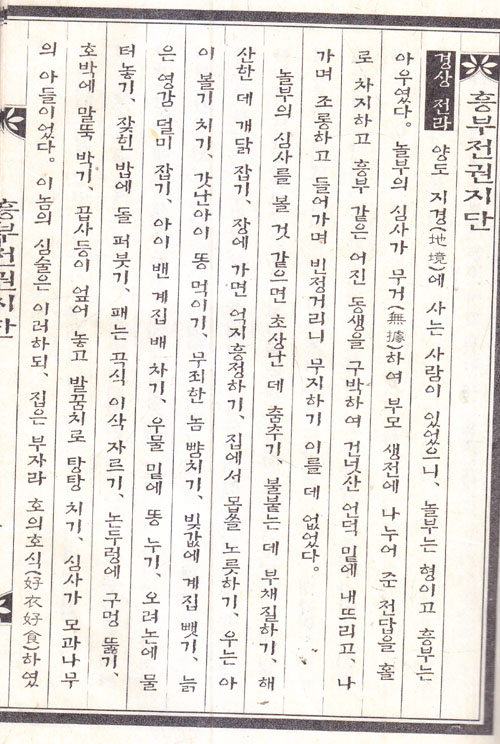 흥부전권지단
경상 전라 양도 지경(地境)에 사는 사람이 있었으니, 놀부는 형이고 흥부는
아우였다. 놀부의 심사가 무거(無據)하여 부모 생전에 나누어 준 전답을 홀
로 차지하고 흥부 같은 어진 동생을 구박하여 건넛산 언덕 밑에 내뜨리고、 나
가며 조롱하고 들어가며 빈정거리니 무지하기 이를 데 없었다。
놀부의 심사를 볼 것 같으면 초상난 데 춤추기、 불붙는 데 부채질하기、 해
산한 데 개닭 잡기、 장에 가면 억지흥정하기、 집에서 몹쓸 노릇하기、 우는 아
이 볼기 치기、 갓난아이 똥 먹이기、 무죄한 놈 뺨치기、 빚값에 계집 뺏기、 늙
은 영감 덜미 잡기、 아이 밴 계집 배 차기、 우물 밑에 똥 누기、 오려논에 물
터놓기、 잦힌 밥에 돌 퍼붓기、 패는 곡식 이삭 자르기、 논두렁에 구멍 뚫기、
호박에 말뚝 박기、 곱사등이 엎어 놓고 발꿈치로 탕탕 치기、 심사가 모과나무
의 아들이었다。 이놈의 심술은 이러하되、 집은 부자라 호의호식(好衣好食)하였
흥부전권지단